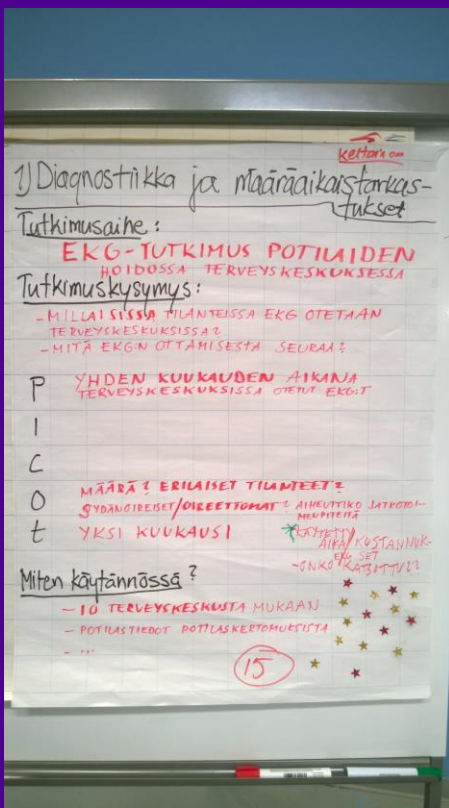 1) Diagnostiikka ja määräaikaistarkas-
tukset
Tutkimusaihe:
EKG-TUTKIMUS POTILAIDEN
HOIDOSSA TERVEYSKESKUKSESSA
Tutkimuskysymys:
- MILLAISISSA TILANTEISSA EKG OTETAAN
TERVEYSKESKUKSISSA?
- MITÄ EKG:N OTTAMISESTA SEURAA?
P YHDEN KUUKAUDEN AIKANA
TERVEYSKESKUKSISSA OTETUT EKG:T
I
C
O MÄÄRÄ? ERILAISET TILANTEET?
SYDÄNOIREISET/OIREETTOMAT? AIHEUTTIKO JATKOTOI-
MENPITEITÄ
t YKSI KUUKAUSI
* KÄYTETTY
AIKA/KUSTANNUK-
SET
EKG
- ONKO KATSOTTU??
Miten käytännössä?
- 10 TERVEYSKESKUSTA MUKAAN
- POTILASTIEDOT POTILASKERTOMUKSISTA
- ...
15